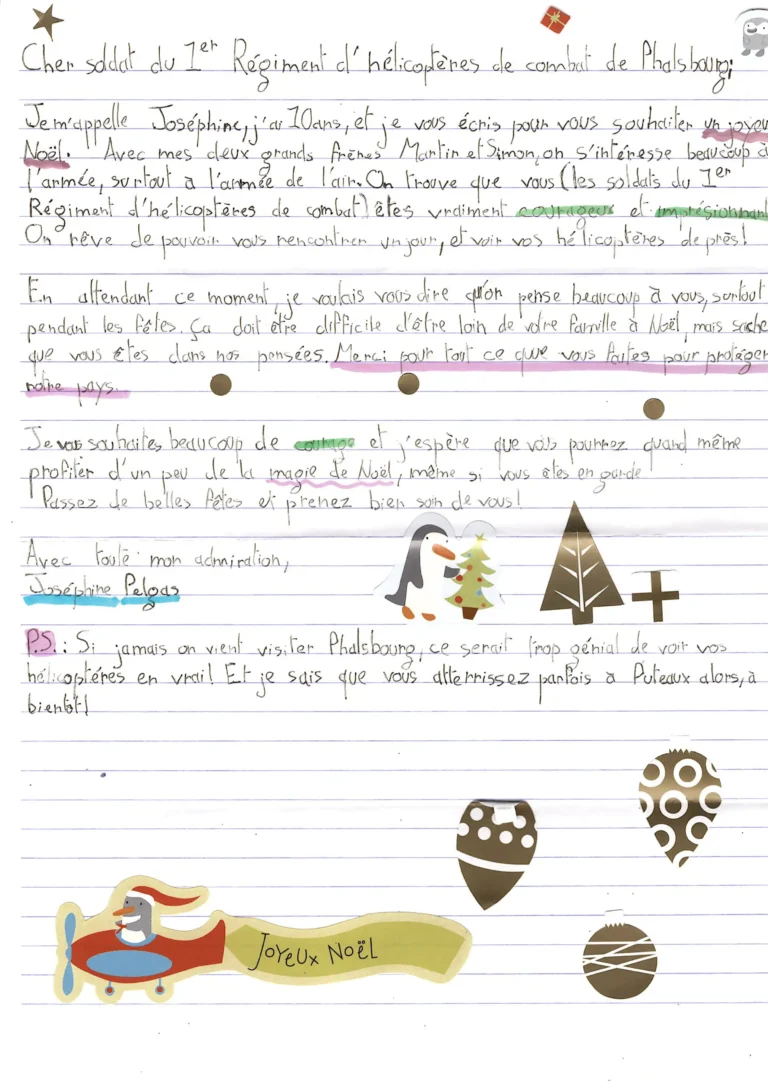 Cher soldat du 1er Régiment d'hélicoptères de combat de Phalsbourg;
Je m'appelle Joséphine, j'ai 10 ans, et je vous écris pour vous souhaiter un joyeu
Noël. Avec mes deux grands frères Martin et Simon, on s'intéresse beaucoup à
l'armée, surtout à l'armée de l'air. On trouve que vous (les soldats du 1er
Régiment d'hélicoptères de combat) êtes vraiment courageux et imprésionnant
On rêve de pouvoir vous rencontrer un jour, et voir vos hélicoptères de près!
En attendant ce moment, je voulais vous dire qu'on pense beaucoup à vous, surtout
pendant les fêtes. Ça doit être difficile d'être loin de votre famille à Noël, mais sache
que vous êtes dans nos pensées. Merci pour tout ce que vous faites pour protéger
notre pays.
Je vous souhaites beaucoup de courage et j'espère que vous pourrez quand même
profiter d'un peu de la magie de Noël, même si vous êtes en garde
Passez de belles fêtes et prenez bien soin de vous!
Avec toute mon admiration,
Joséphine Pelgas
P.S.: Si jamais on vient visiter Phalsbourg, ce serait trop génial de voir vos
hélicoptéres en vrai! Et je sais que vous atterrissez parfois à Puteaux alors, à
bientôt!
JOYEUX NOËL